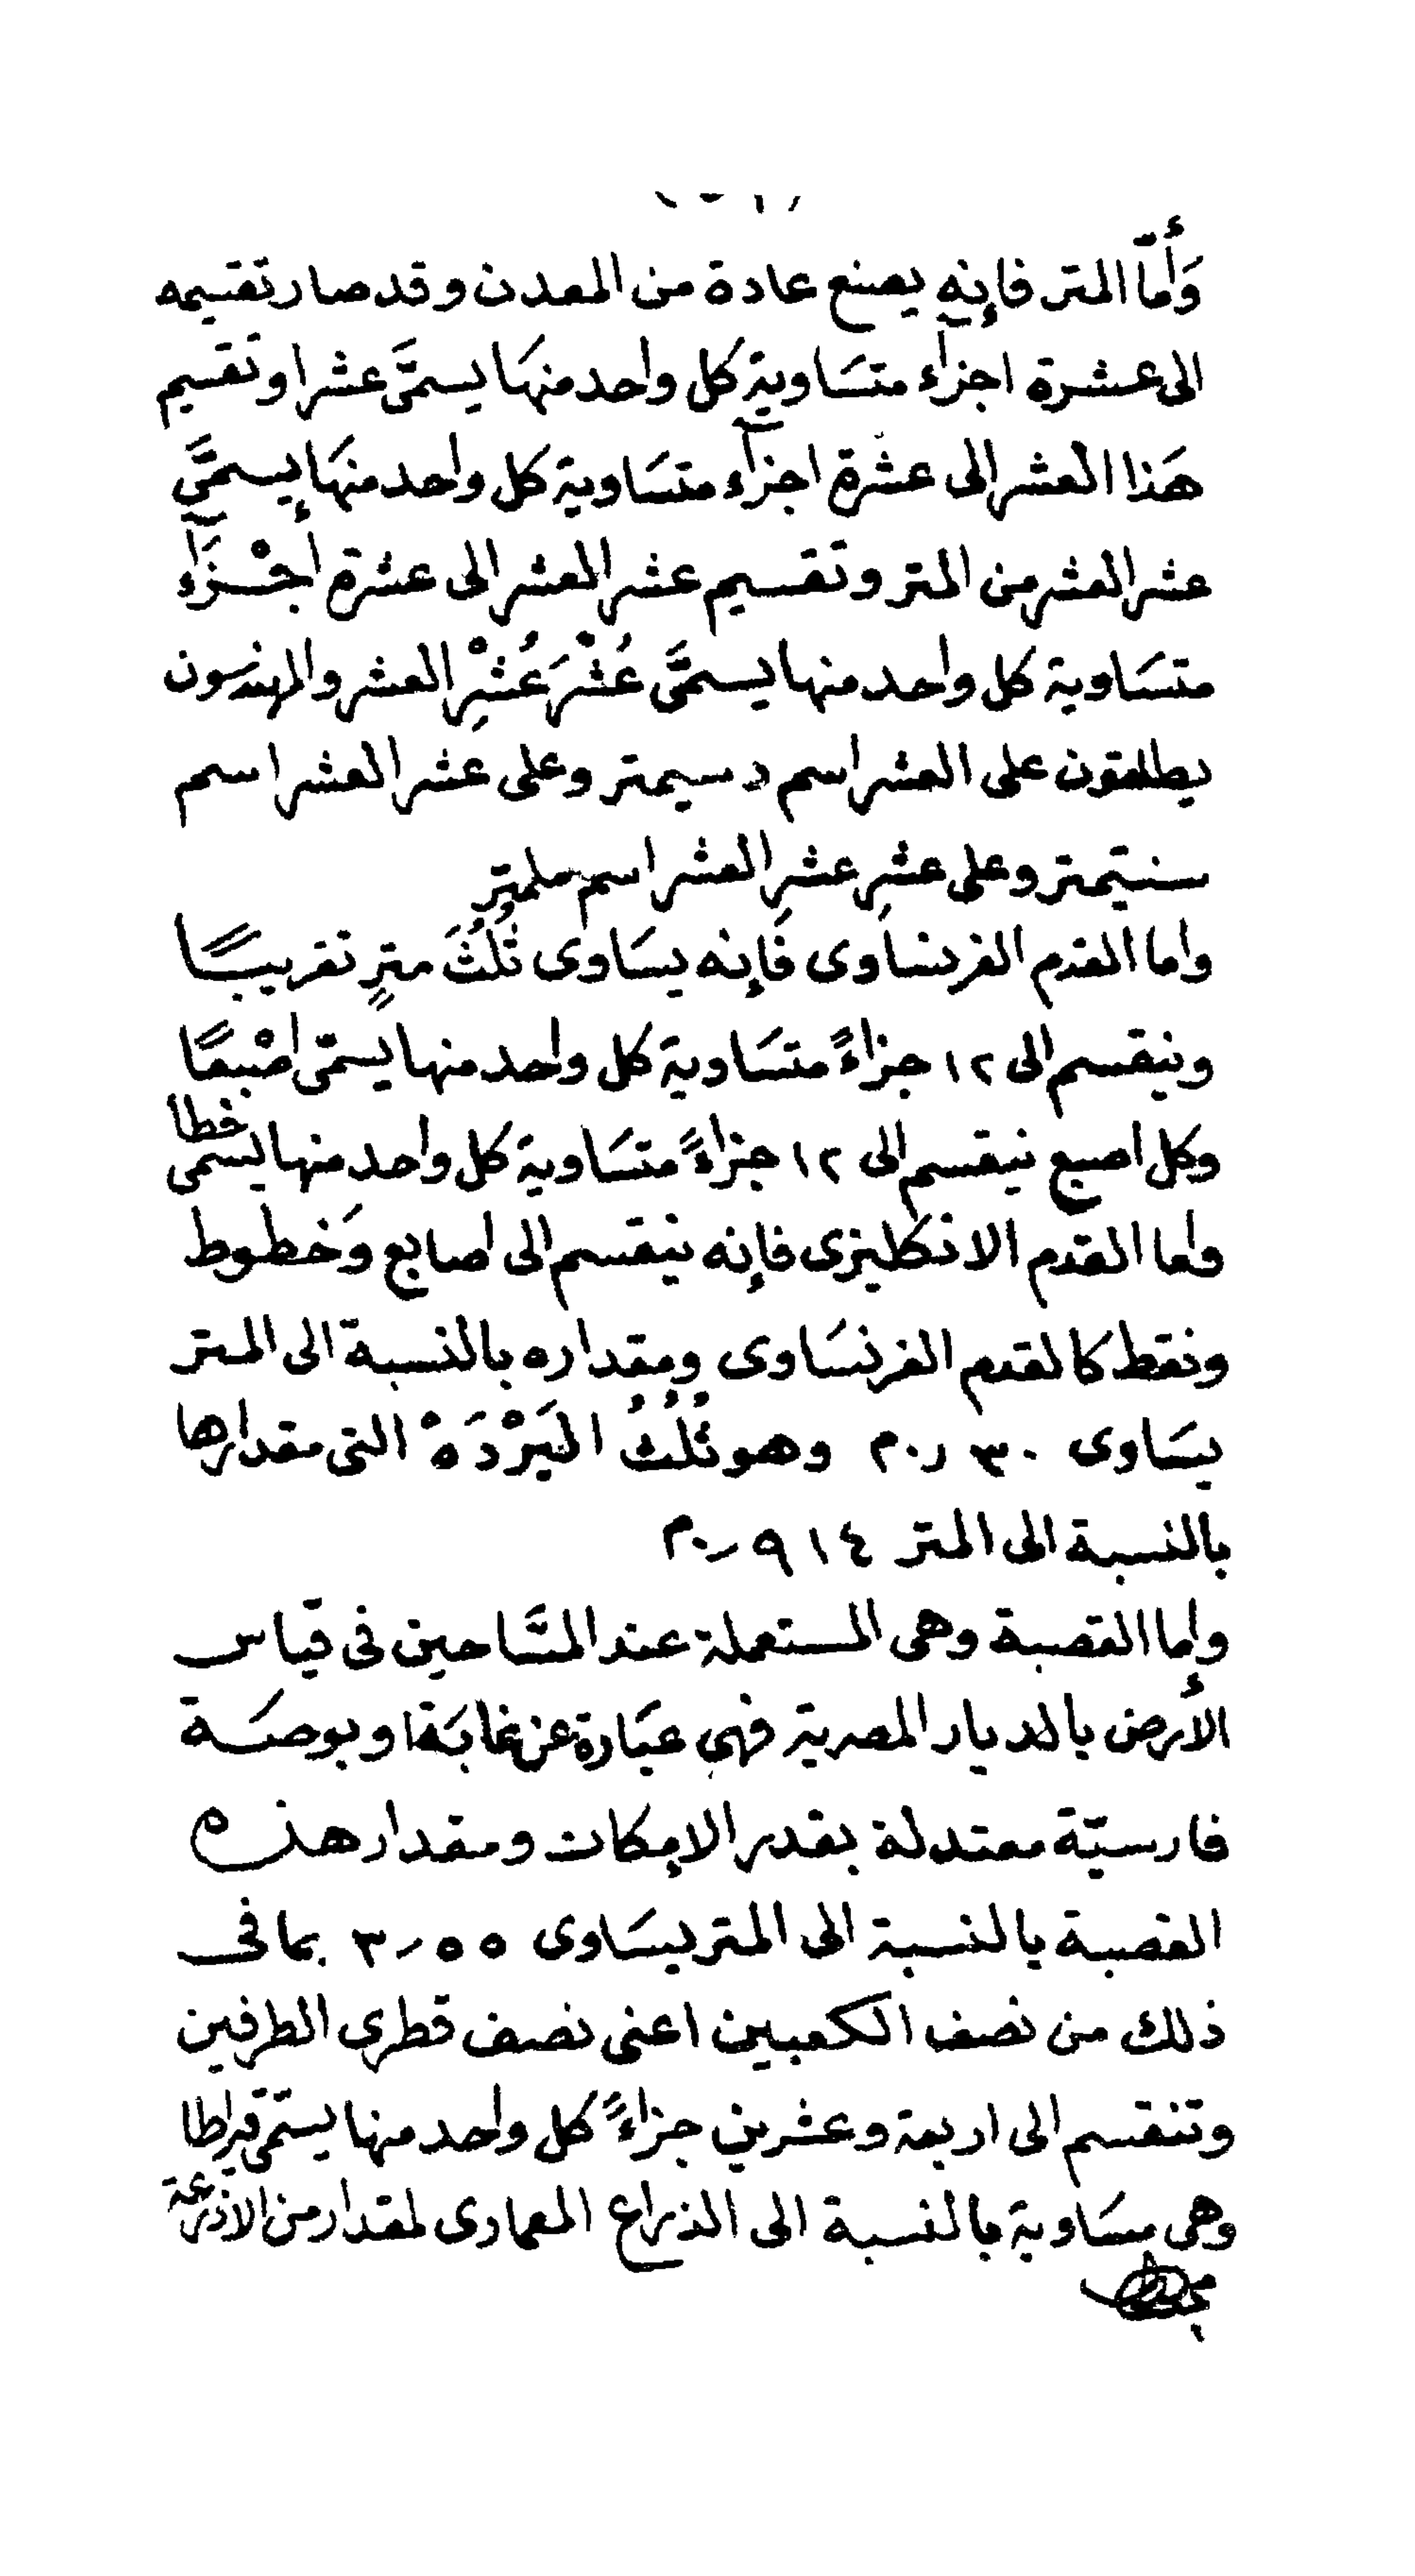 وَأمّا المتر فإنه يصنع عادة من المعدن وقد صار تقسيمه
الى عشرة اجزآء متسَاوية كل واحد منهَا يسمَّى عشرا وتقسيم
هَذا العشر الى عشرة اجزآء متسَاوية كل واحد منهَا يسمَّى
عشر العشر من المتر وتقسيم عشر العشر الى عشرة أجْزَآء
متسَاوية كل واحد منها يسمَّى عُشْرَ عُشْرِ العشر والمهندسَون
يطلقون على العشر اسم دسيمتر وعلى عشر العشر اسم
سنتيمتر وعلى عشرِ عشرِ العشر اسم ملمتر
واما القدم الفرنساوى فَإنه يسَاوى ثُلُثَ مترٍ تقريبًا
وينقسم الى ١٢ جزاءً متسَاوية كل واحد منها يسمّى اصْبعًا
وكل اصبع ينقسم الى ١٢ جزاءً متسَاوية كل واحد منها يسمى خطا
واما القدم الانكليزى فإنه ينقسم الى اصابع وَخطوط
ونقط كالقدم الفرنسَاوى ومقداره بالنسبة الى المتر
يسَاوى ٣٠ر٠م وهو ثُلُثُ اليَرْدَهْ التى مقدارها
بالنسبة الى المتر ٩١٤ر٠م
واما القصبة وهى المستعملة عند المسَّاحين فى قياس
الأرض بالديار المصرية فهى عبَارة عن غابَة او بوصَة
فارسيّة معتدلة بقدر الإمكان ومقدار هذه
القصبة بالنسبة الى المتر يسَاوى ٥٥ر٣ بما فى
ذلك من نصف الكعبين اعنى نصف قطرى الطرفين
وتنقسم الى اربعة وعشرين جزاءً كل واحد منها يسمّى قيراطا
وهى مسَاوية بالنسبة الى الذراع المعمارى لمقدار من الاذرعة